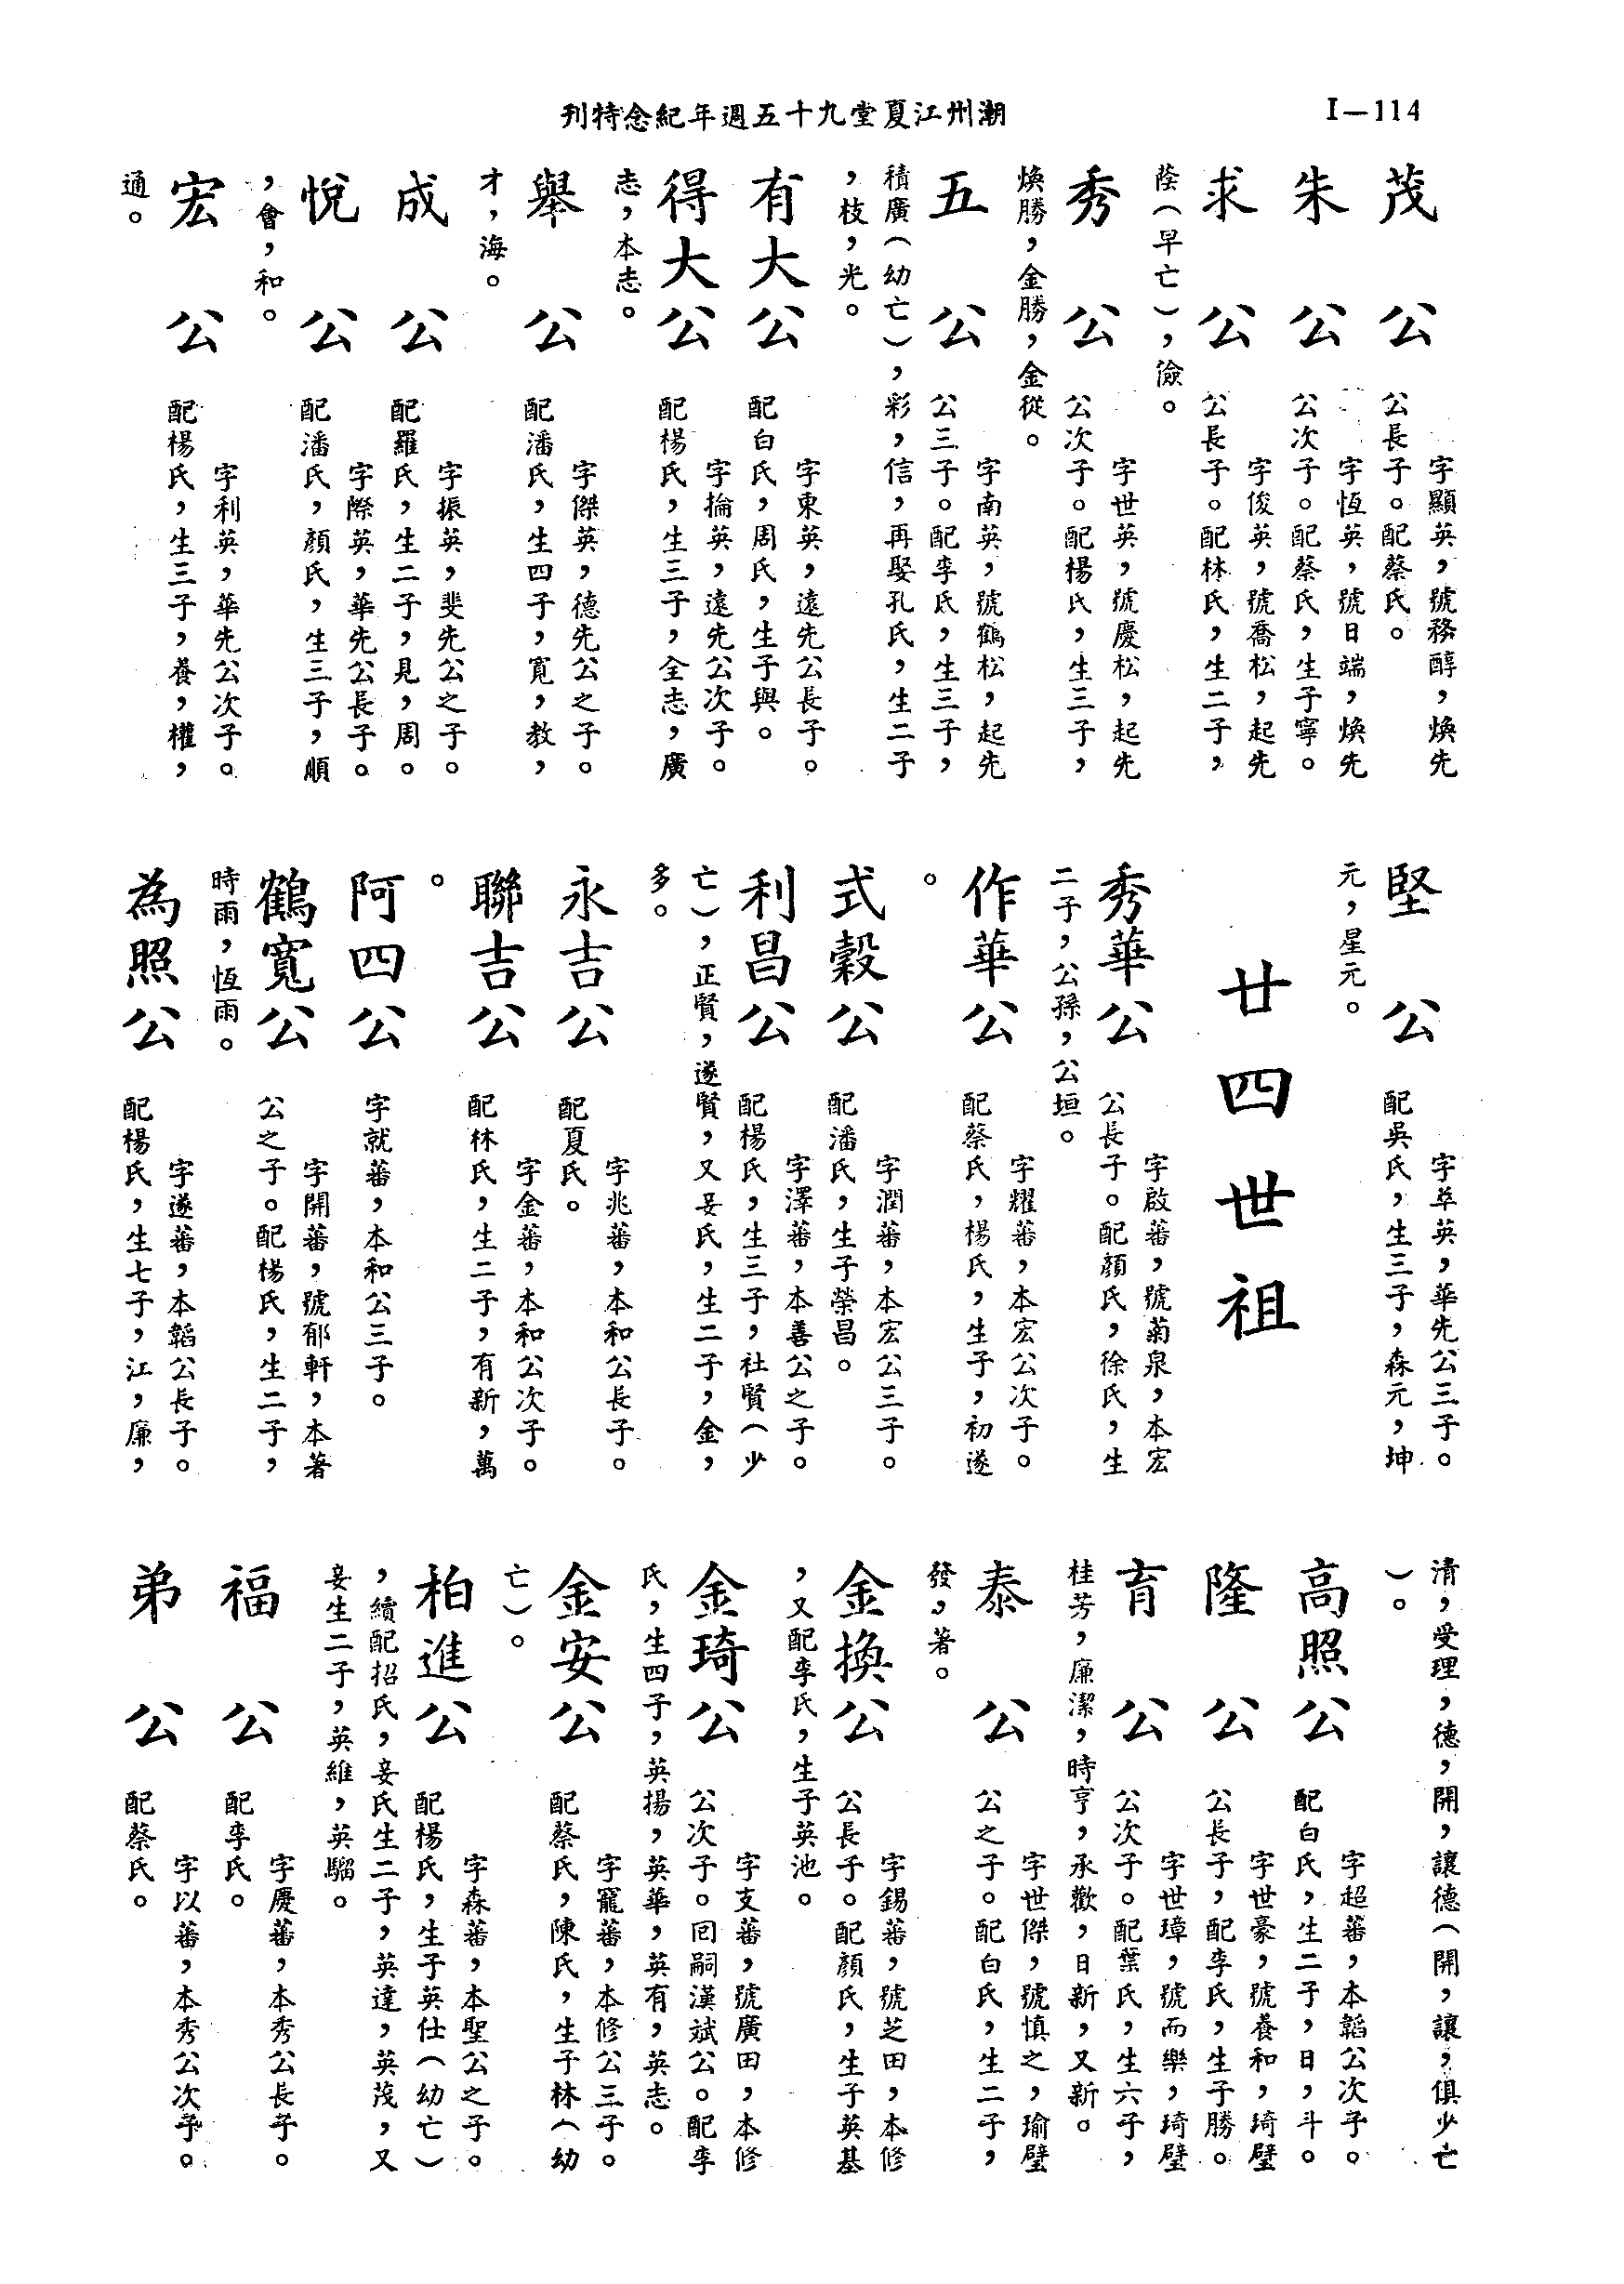 潮州江夏堂九十五週年紀念特刊
I—114
茂公
字顯英，號務醇，煥先
公長子。配蔡氏。
朱公
字恆英，號日端，煥先
公次子。配蔡氏，生子寧。
求公
字俊英，號喬松，起先
公長子。配林氏，生二子，
蔭（早亡），儉。
秀公
字世英，號慶松，起先
公次子。配楊氏，生三子，
煥勝，金勝，金從。
五公
字南英，號鶴松，起先
公三子。配李氏，生三子，
積廣（幼亡），彩，信，再娶孔氏，生二子
，枝，光。
有大公
字東英，遠先公長子。
配白氏，周氏，生子與。
得大公
字掄英，遠先公次子。
配楊氏，生三子，全志，廣
志，本志。
舉公
字傑英，德先公之子。
配潘氏，生四子，寬，教，
才，海。
成公
字振英，斐先公之子。
配羅氏，生二子，見，周。
悅公
字際英，華先公長子。
配潘氏，顏氏，生三子，順
，會，和。
宏公
字利英，華先公次子。
配楊氏，生三子，養，權，
通。
堅公
字萃英，華先公三子。
配吳氏，生三子，森元，坤
元，星元。
廿四世祖
秀華公
字啟蕃，號菊泉，本宏
公長子。配顏氏，徐氏，生
二子，公孫，公垣。
作華公
字耀蕃，本宏公次子。
配蔡氏，楊氏，生子，初遂
。
式穀公
字潤蕃，本宏公三子。
配潘氏，生子榮昌。
利昌公
字澤蕃，本善公之子。
配楊氏，生三子，社賢（少
亡），正賢，遂賢，又妾氏，生二子，金，
多。
永吉公
字兆蕃，本和公長子。
配夏氏。
聯吉公
字金蕃，本和公次子。
配林氏，生二子，有新，萬
。
阿四公
字就蕃，本和公三子。
鶴寬公
字開蕃，號郁軒，本著
公之子。配楊氏，生二子，
時雨，恆雨。
為照公
字遂蕃，本韜公長子。
配楊氏，生七子，江，廉，
清，受理，德，開，讓德（開，讓，俱少亡
）。
高照公
字超蕃，本韜公次子。
配白氏，生二子，日，斗。
隆公
字世豪，號養和，琦璧
公長子，配李氏，生子勝。
育公
字世璋，號而樂，琦璧
公次子。配葉氏，生六子，
桂芳，廉潔，時亨，承歡，日新，又新。
泰公
字世傑，號慎之，瑜璧
公之子。配白氏，生二子，
發，著。
金換公
字錫蕃，號芝田，本修
公長子。配顏氏，生子英基
，又配李氏，生子英池。
金琦公
字支蕃，號廣田，本修
公次子。囘嗣漢斌公。配李
氏，生四子，英揚，英華，英有，英志。
金安公
字寵蕃，本修公三子。
配蔡氏，陳氏，生子林（幼
亡）。
柏進公
字森蕃，本聖公之子。
配楊氏，生子英仕（幼亡）
，續配招氏，妾氏生二子，英達，英茂，又
妾生二子，英維，英騮。
福公
字慶蕃，本秀公長子。
配李氏。
弟公
字以蕃，本秀公次子。
配蔡氏。